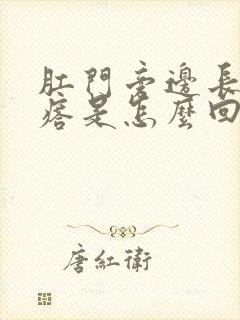 肛門旁邊長
痞是怎麼回
唐紅衛